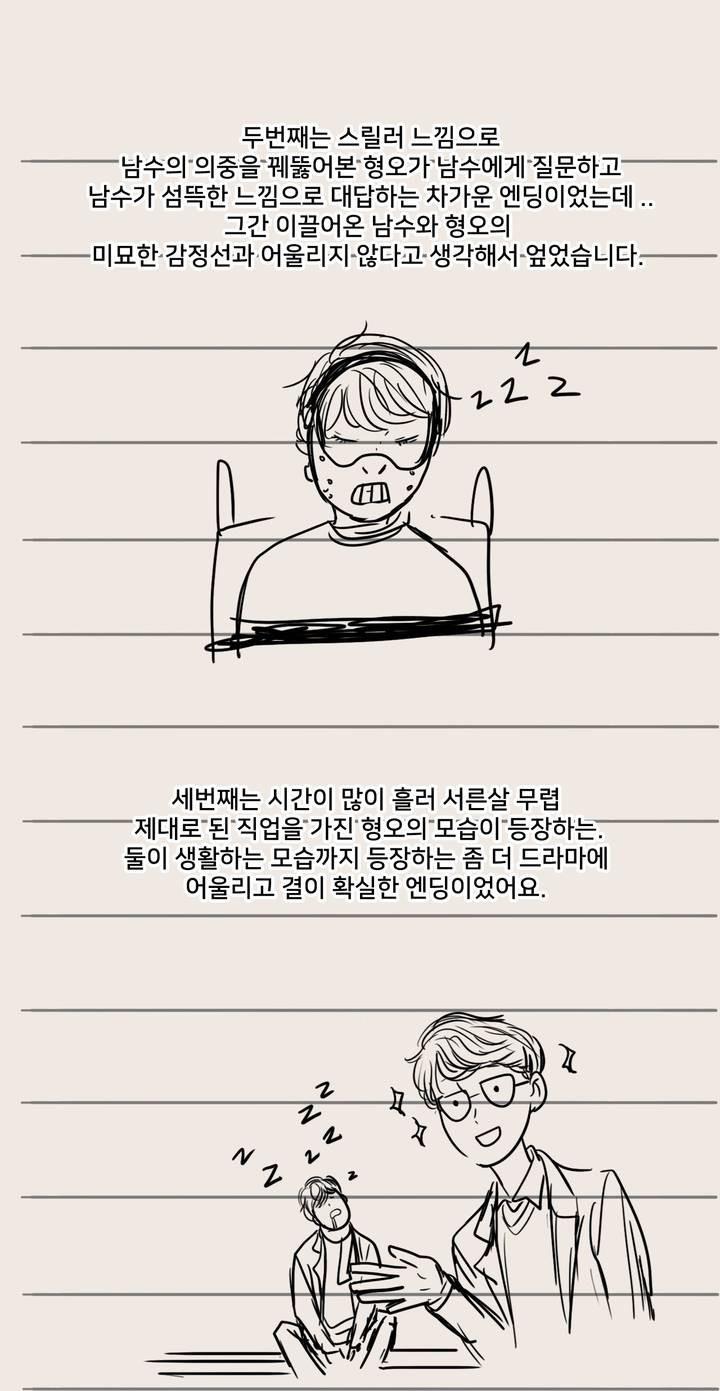 두번째는 스릴러 느낌으로
남수의 의중을 꿰뚫어본 형오가 남수에게 질문하고
남수가 섬뜩한 느낌으로 대답하는 차가운 엔딩이었는데 ..
그간 이끌어온 남수와 형오의
미묘한 감정선과 어울리지 않다고 생각해서 엎었습니다.
z z z z
세번째는 시간이 많이 흘러 서른살 무렵
제대로 된 직업을 가진 형오의 모습이 등장하는.
둘이 생활하는 모습까지 등장하는 좀 더 드라마에
어울리고 결이 확실한 엔딩이었어요.
z z z z z z z